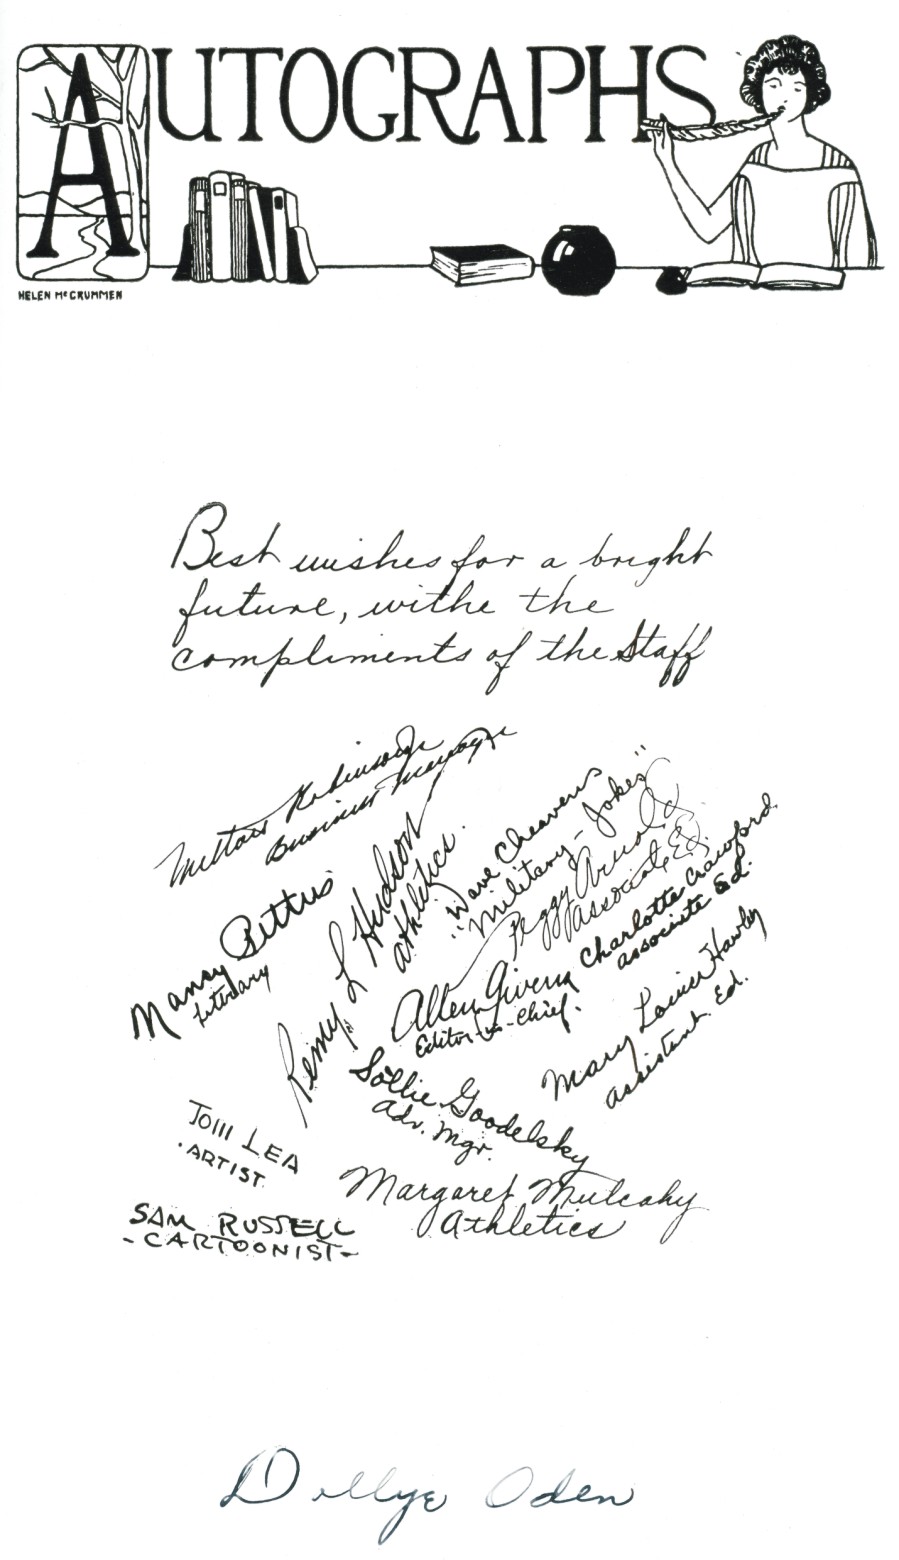 AUTOGRAPHS
HELEN McCRUMMEN
Best wishes for a bright
future, withe the
compliments of the Staff
Milton Robinson
Business Manager
Nancy Pettus
Literary
Remy L Hudson
Athletics.
Dave Cheavens
"Military - Jokes"
Peggy Arnold
Associate Ed.
Charlotte Crawford
associate Ed.
Allen Givens
Editor-in-Chief.
Mary Louise Hawley
Assistant Ed.
Sollie Goodelsky
Adv. Mgr.
TOM LEA
·ARTIST
Margaret Mulcahy
Athletics
SAM RUSSELL
-CARTOONIST-
Dollye Oden